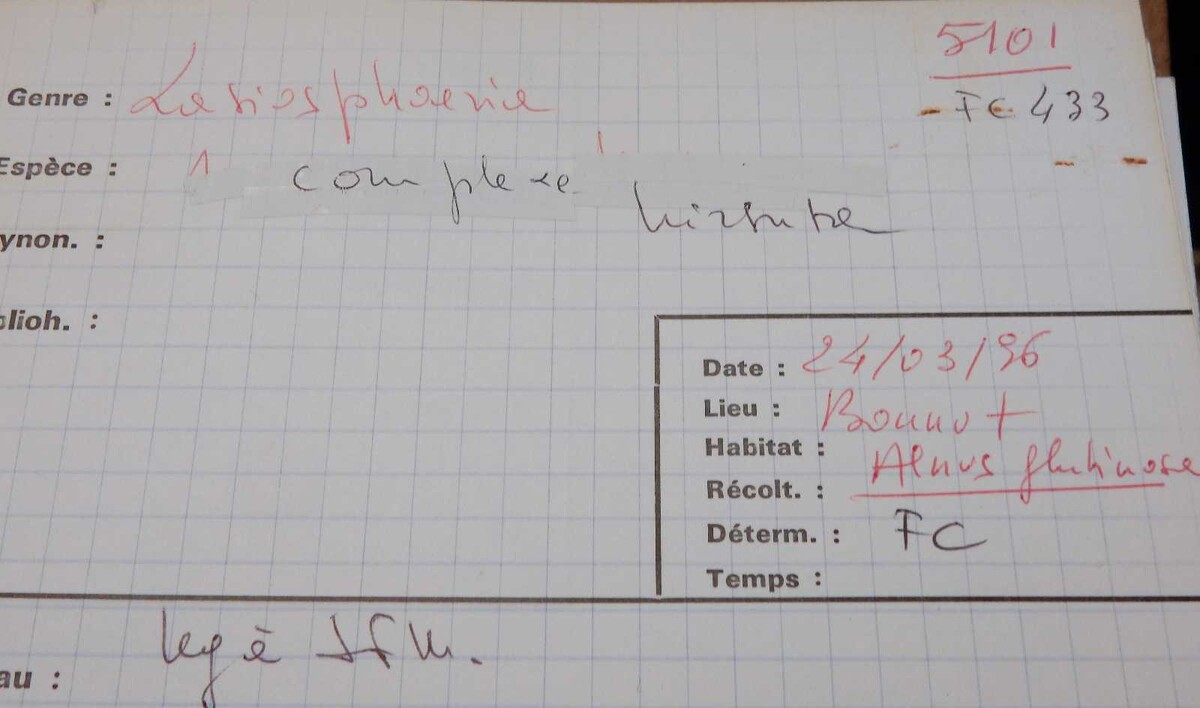 5101
Genre : Lasiosphaeria
FC 433
Espèce : 1 complexe hirsuta
ynon. :
lioh. :
Date : 24/03/96
Lieu : Bonnot
Habitat : Alnus glutinosa
Récolt. :
Déterm. : FC
Temps :
leg à
au :